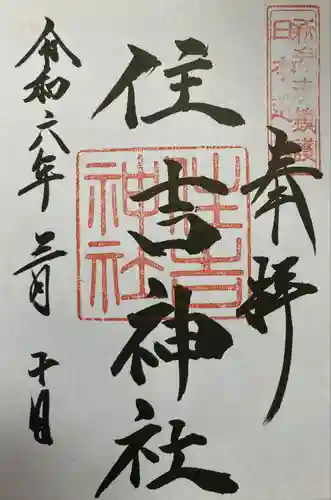 奉拝
住吉神社
住吉神社
令和六年三月十日